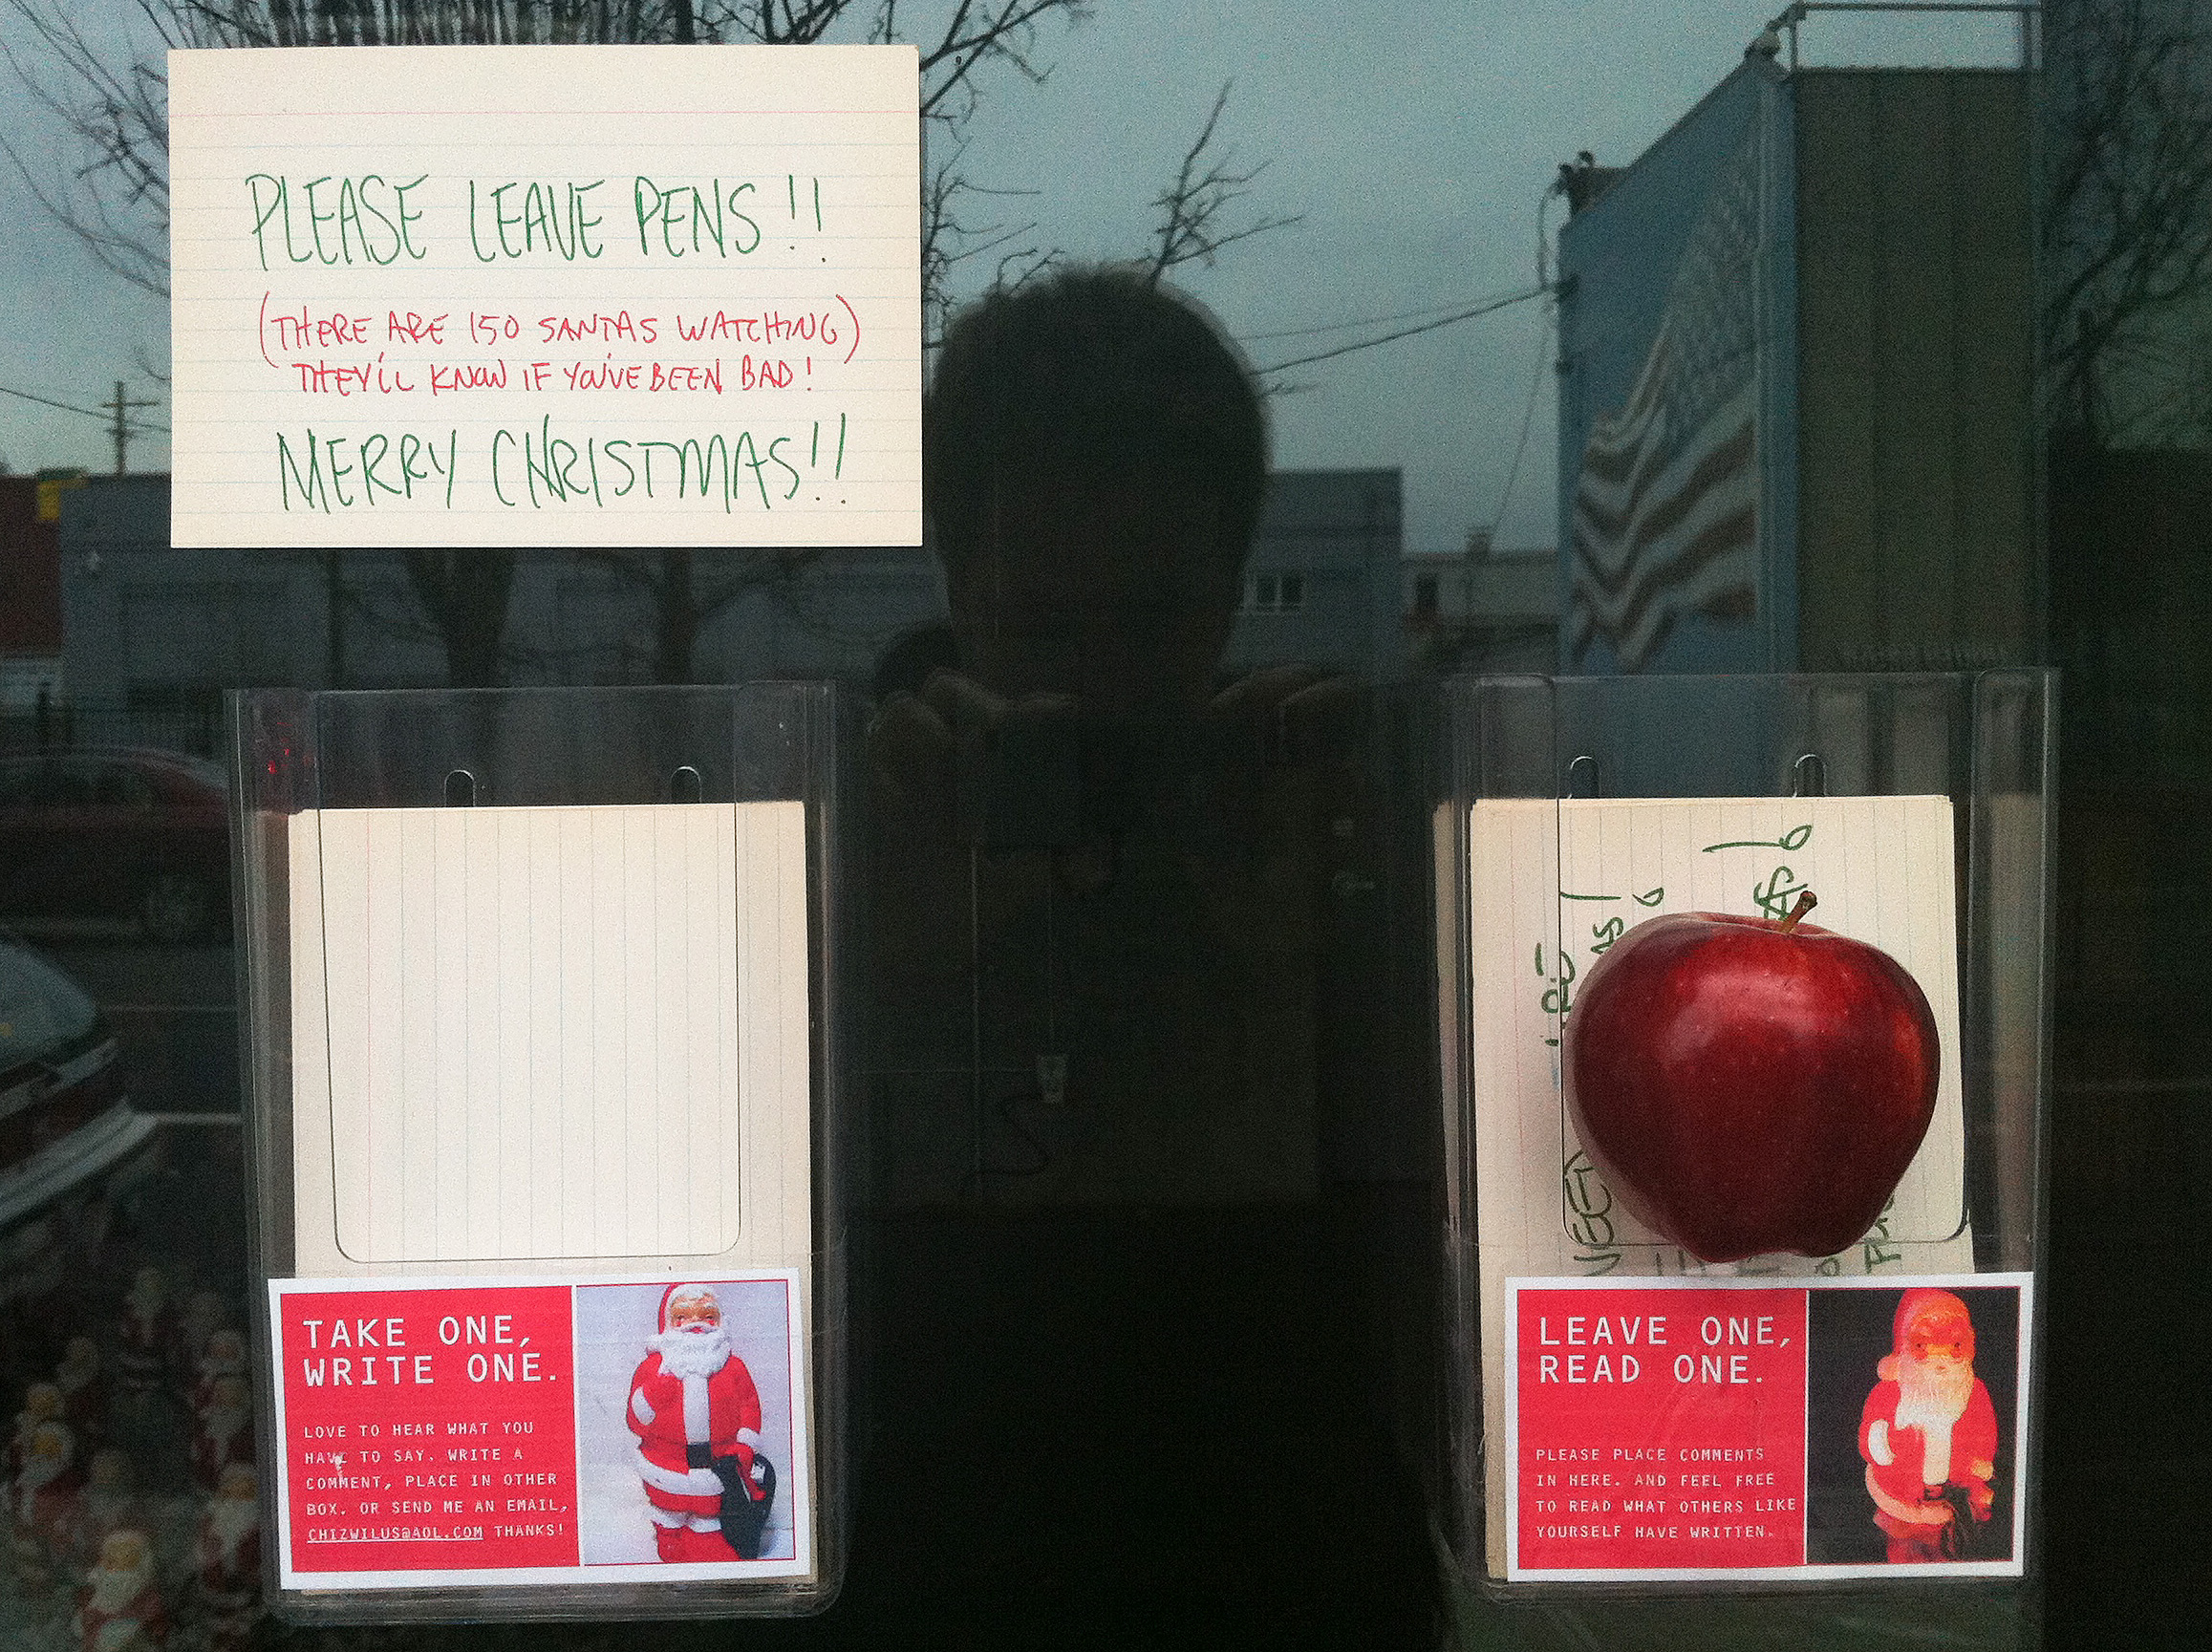 PLEASE LEAVE PENS!!
(THERE ARE 150 SANTAS WATCHING)
THEY'LL KNOW IF YOU'VE BEEN BAD!
MERRY CHRISTMAS!!
TAKE ONE,
WRITE ONE.
LOVE TO HEAR WHAT YOU
HAVE TO SAY. WRITE A
COMMENT, PLACE IN OTHER
BOX. OR SEND ME AN EMAIL,
CHIZWILUS@AOL.COM THANKS!
LEAVE ONE,
READ ONE.
PLEASE PLACE COMMENTS
IN HERE. AND FEEL FREE
TO READ WHAT OTHERS LIKE
YOURSELF HAVE WRITTEN.